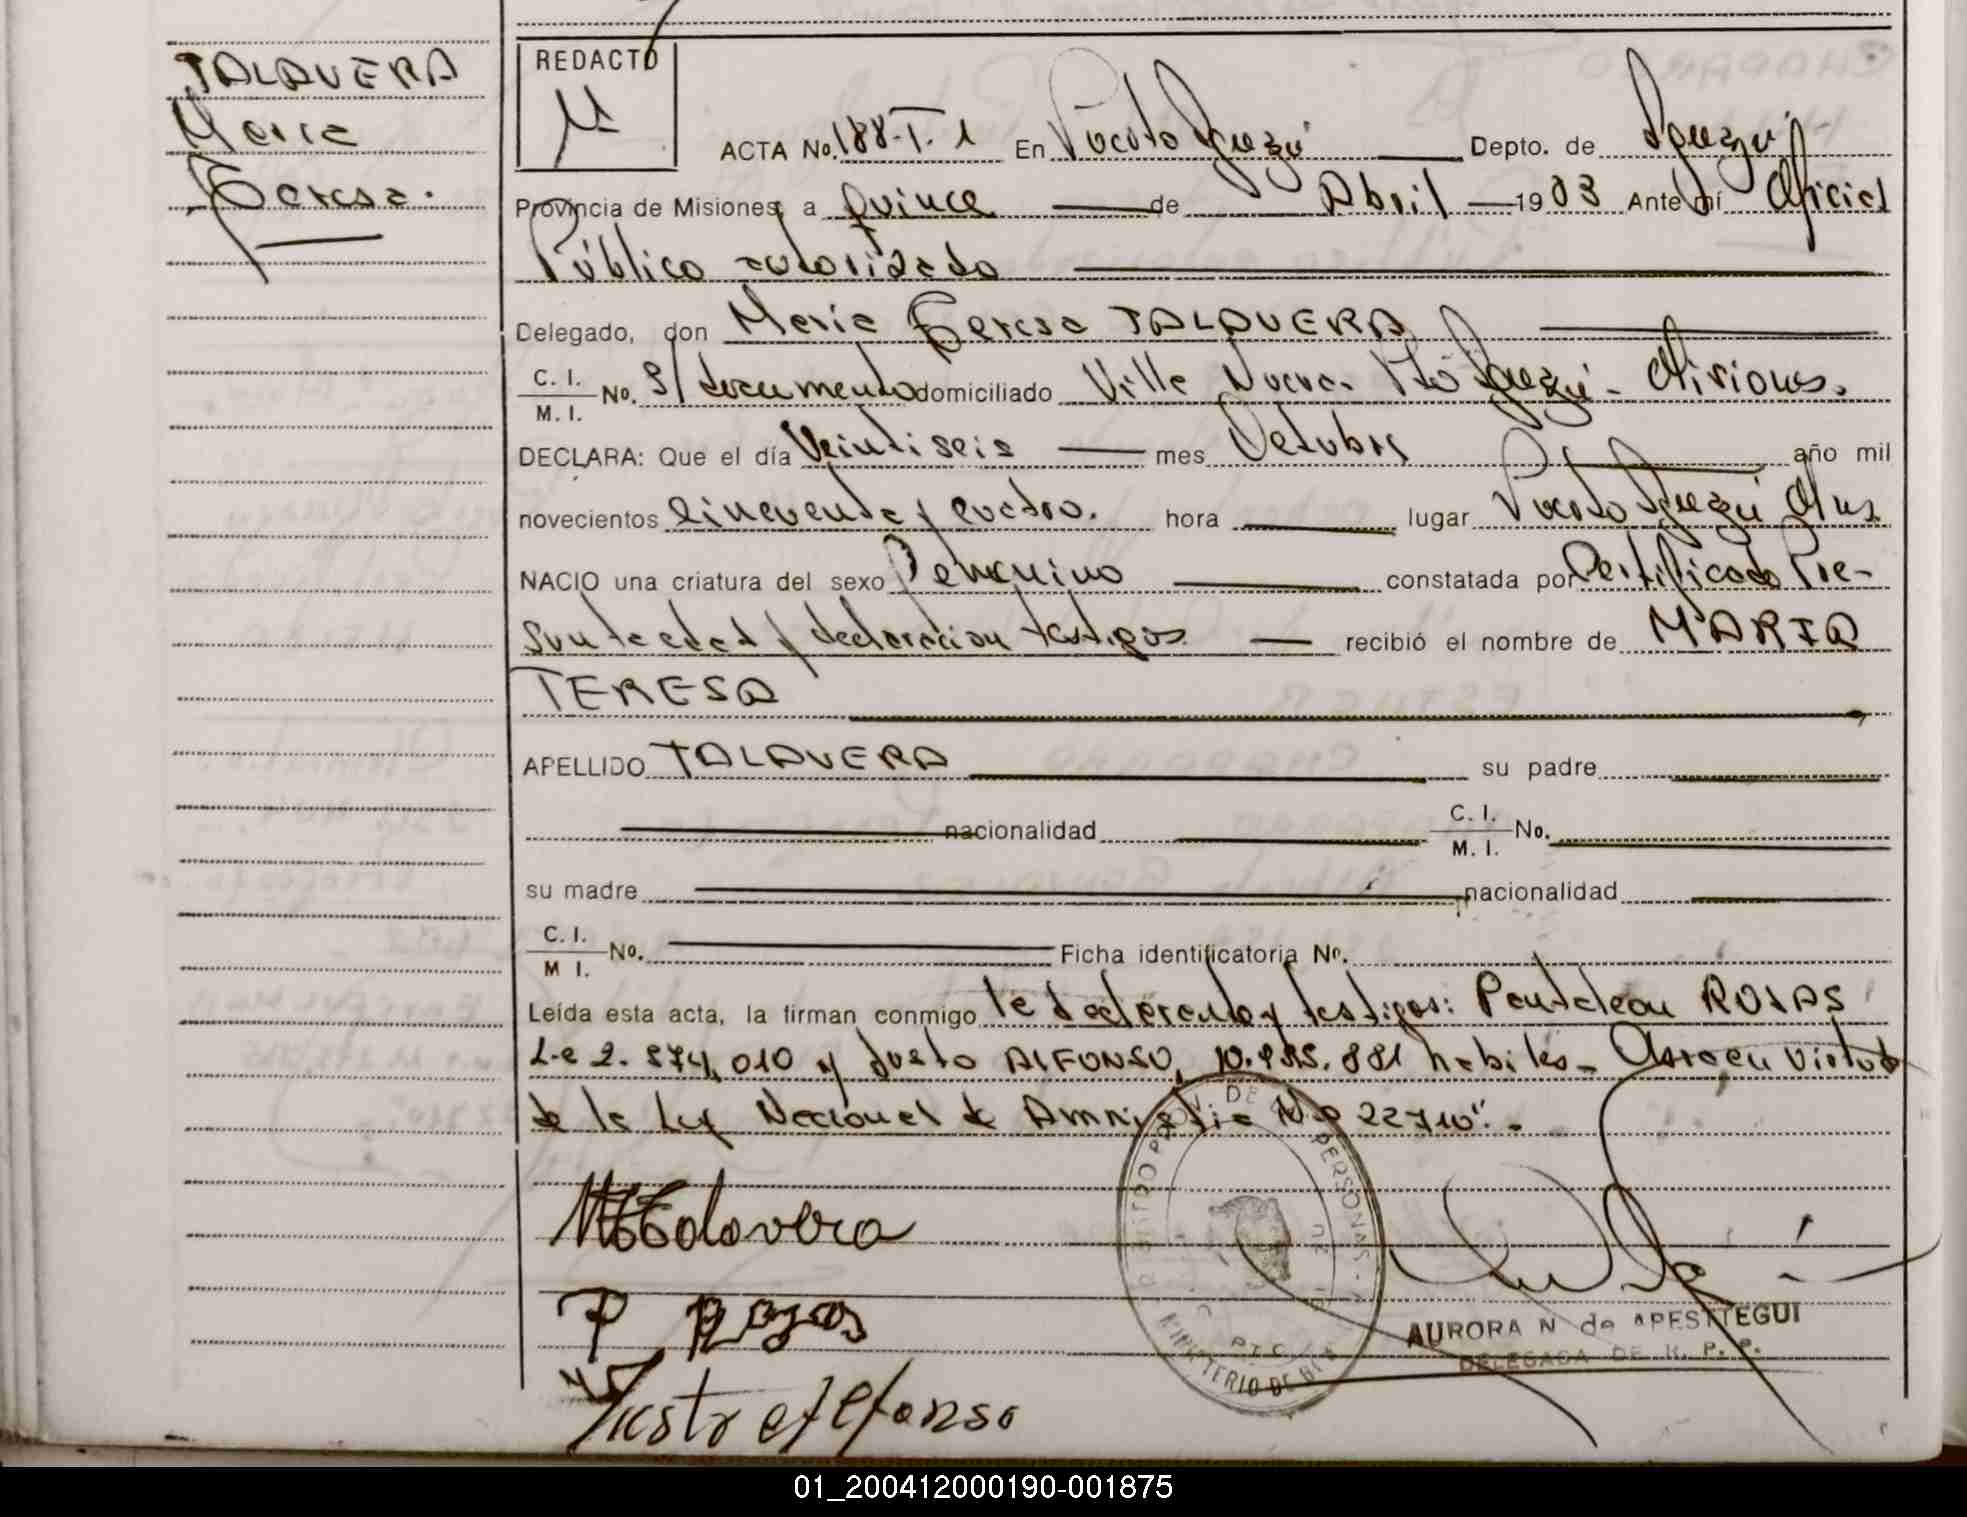 TALAVERA
Maria
Teresa.
REDACTO
ACTA No. 188-T. 1 En Puerto Iguazú Depto. de Iguazú
Provincia de Misiones, a quince de Abril 1983 Ante mí Oficial
Público autorizado
Delegado, don Maria Teresa TALAVERA
C. I.
M. I. No. S/documento domiciliado Villa Nueva. Pto Iguazú - Misiones.
DECLARA: Que el día Veintiseis mes Octubre año mil
novecientos cincuenta y cuatro. hora lugar Puerto Iguazú Mnes
NACIO una criatura del sexo Femenino constatada por Certificado Pre-
sunta edad y declaracion testigos recibió el nombre de MARIA
TERESA
APELLIDO TALAVERA su padre
nacionalidad C. I.
M. I. No.
su madre nacionalidad
C. I.
M I. No. Ficha identificatoria No.
Leída esta acta, la firman conmigo la declarante y testigos: Pantaleon ROJAS
L.e 2. 574,010 y Justo ALFONSO, 881 habiles - en virtud
de la Ley Nacional de Amnistia Nº 22710". -
MTTalavera
P Rojas
Justo alfonso
DE PERSONAS
MINISTERIO DE
AURORA N de APESTTEGUI
DELEGADA DE R. P. P.
01_200412000190-001875